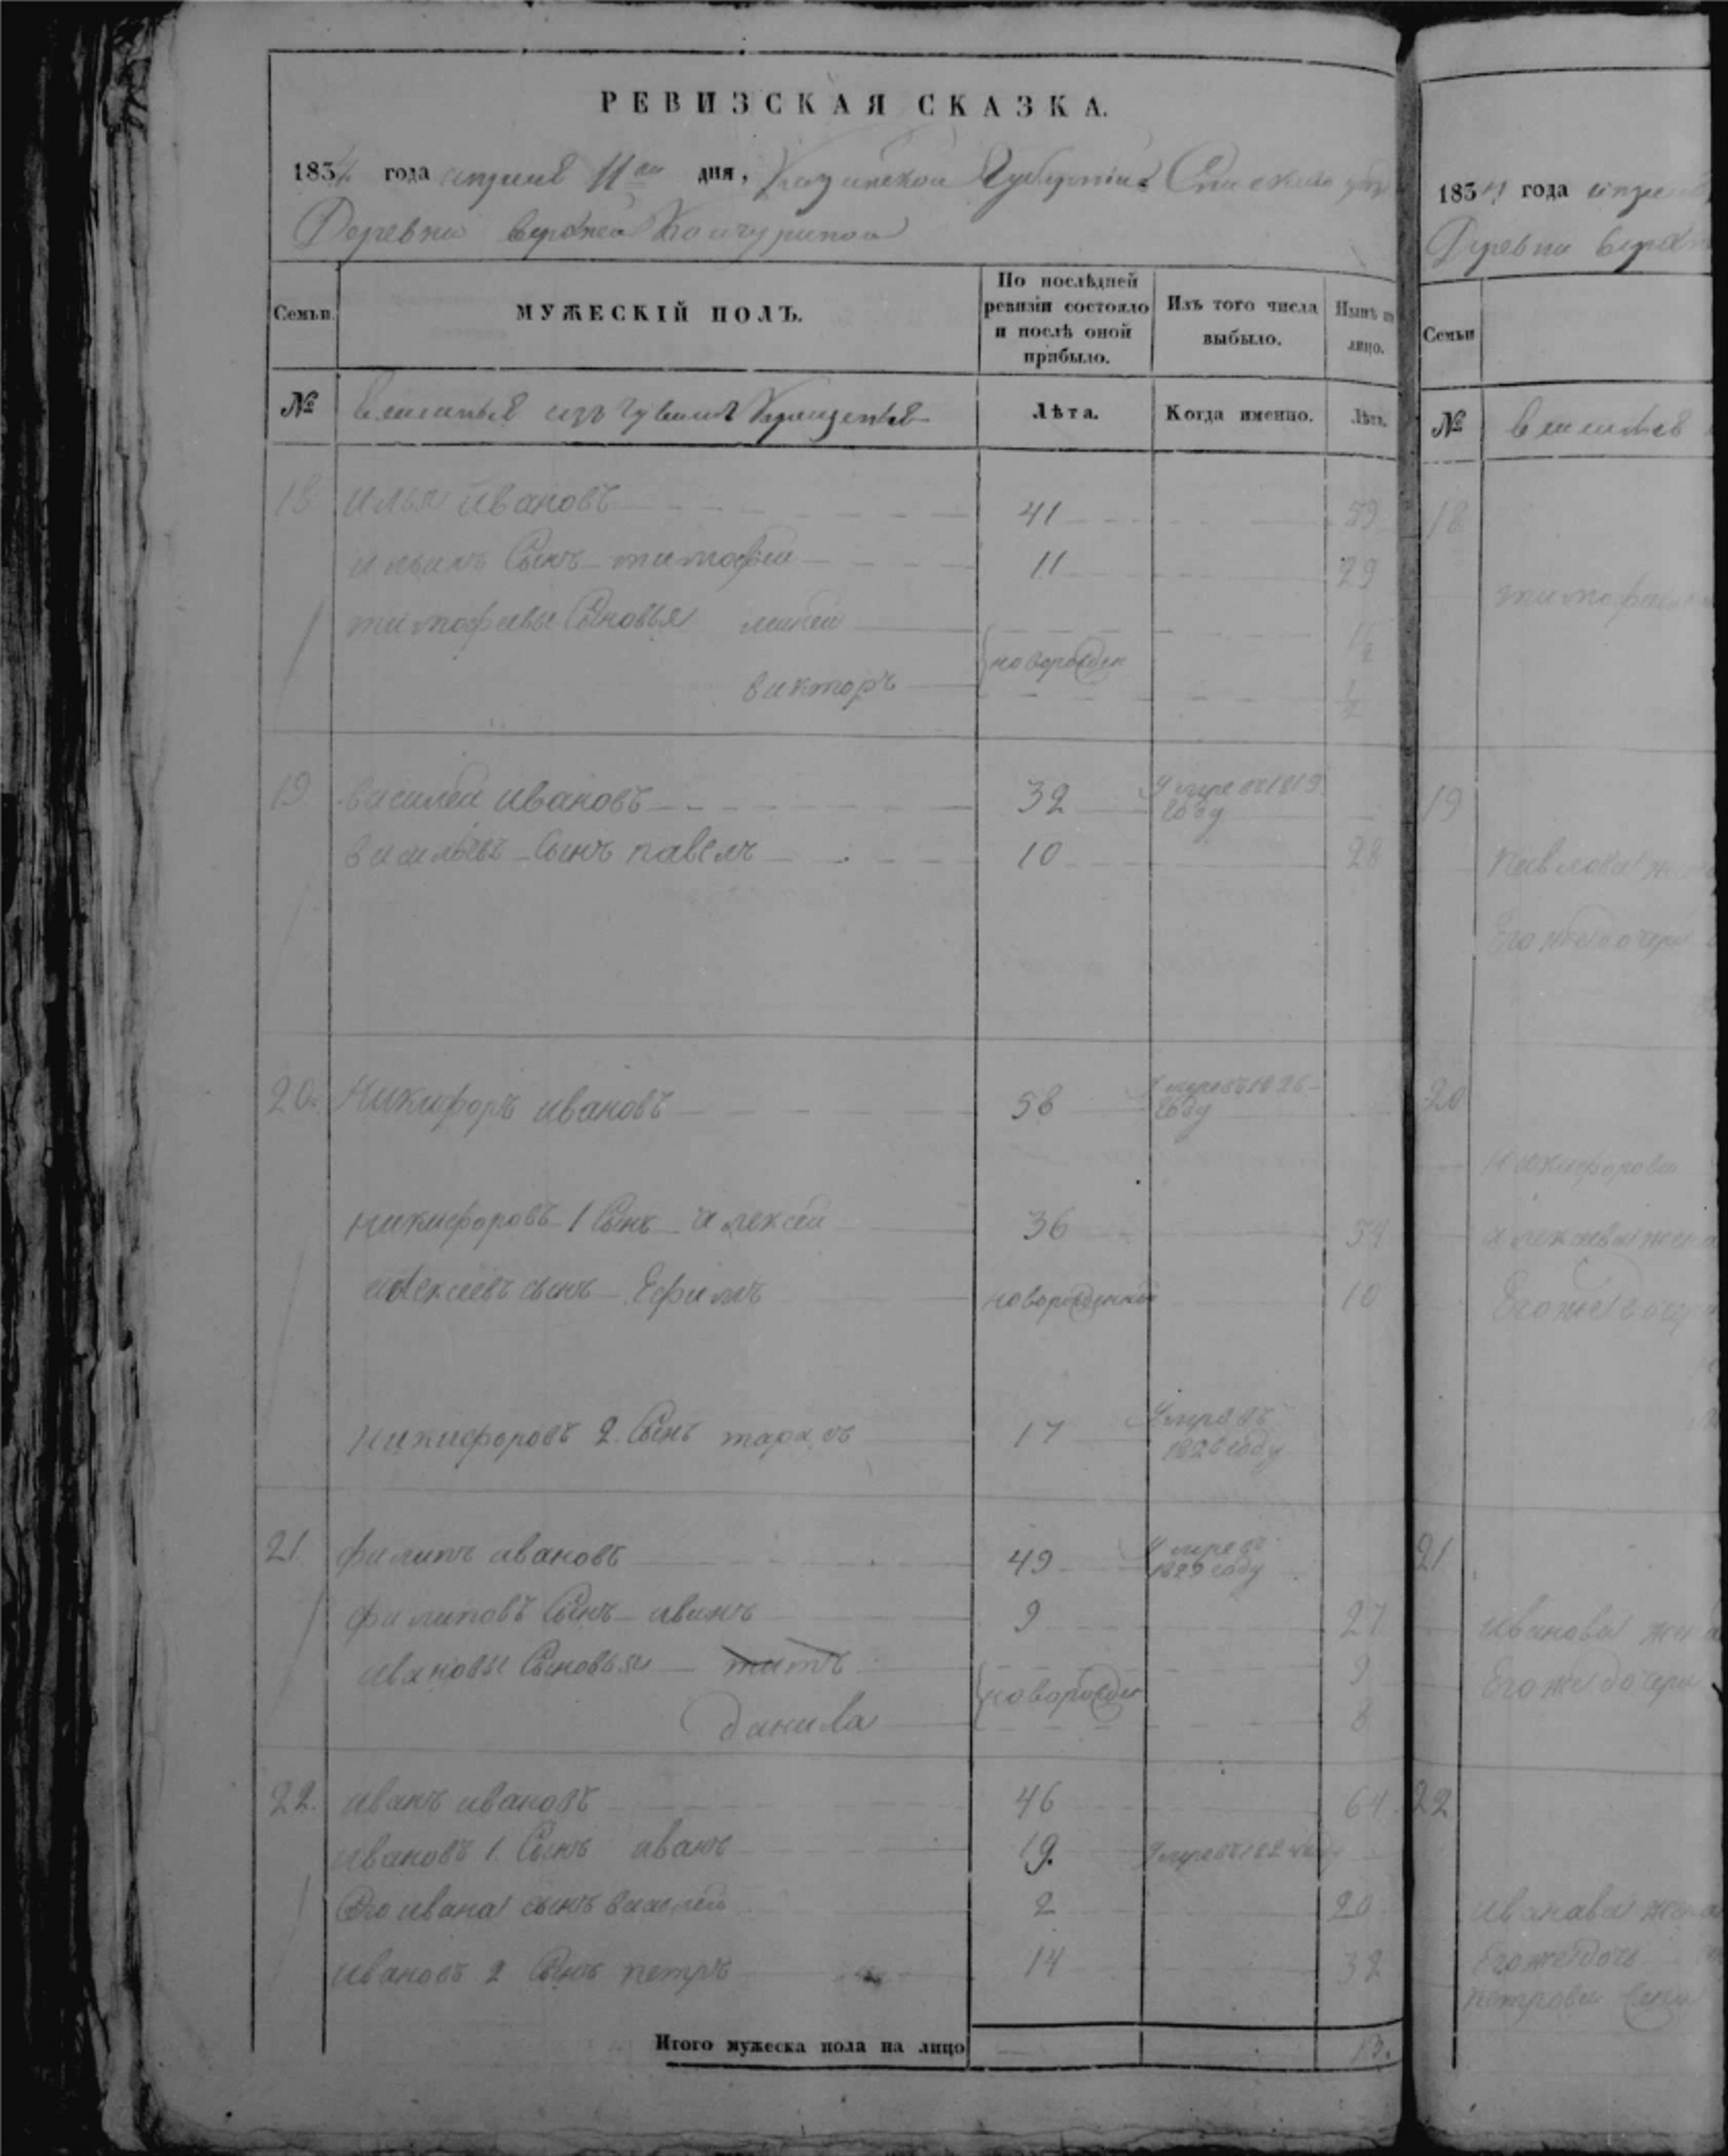 РЕВИЗСКАЯ СКАЗКА.
1834 года апреля 11го дня, Казанской Губернии Спаскаго
Деревни верхней Кончуриной
Семьи. МУЖЕСКІЙ ПОЛЪ. По послѣдней ревизіи состояло и послѣ оной прибыло. Изъ того числа выбыло. Нынѣ на лицо.
№ изъ чувашъ Крещеныхъ Лѣта. Когда именно. Лѣта.
18 илья ивановъ 41 59
ильинъ Сынъ тимофей 11 29
тимофеевы Сыновья миней новорожден 1 1/2
викторъ 1/2
19 василей ивановъ 32 Умре въ 1819 году
васильевъ Сынъ павелъ 10 28
20. Никифоръ ивановъ 58 Умре въ 1826 году
никифоровъ 1 Сынъ алексей 36 54
алексеевъ сынъ Ефимъ новорожденной 10
никифоровъ 2. Сынъ тарасъ 17 Умре въ 1826 году
21. филипъ ивановъ 49 Умре въ 1829 году
филиповъ Сынъ иванъ 9 27
ивановы Сыновья титъ новорожден 9
данила 8
22. иванъ ивановъ 46 64
ивановъ 1. Сынъ иванъ 19. Умре въ
Его ивана сынъ василей 2 20
ивановъ 2 Сынъ петръ 14 32
Итого мужеска пола на лицо 13.
1834 года апреля
Деревни верхн
Семьи
№
18
тимофеева
19
павлова жена
Его же дочери
20
никифорова
алексеева жена
Его же дочери
21
иванова жена
Его же дочери
22
иванова жена
Его же дочь
петрова